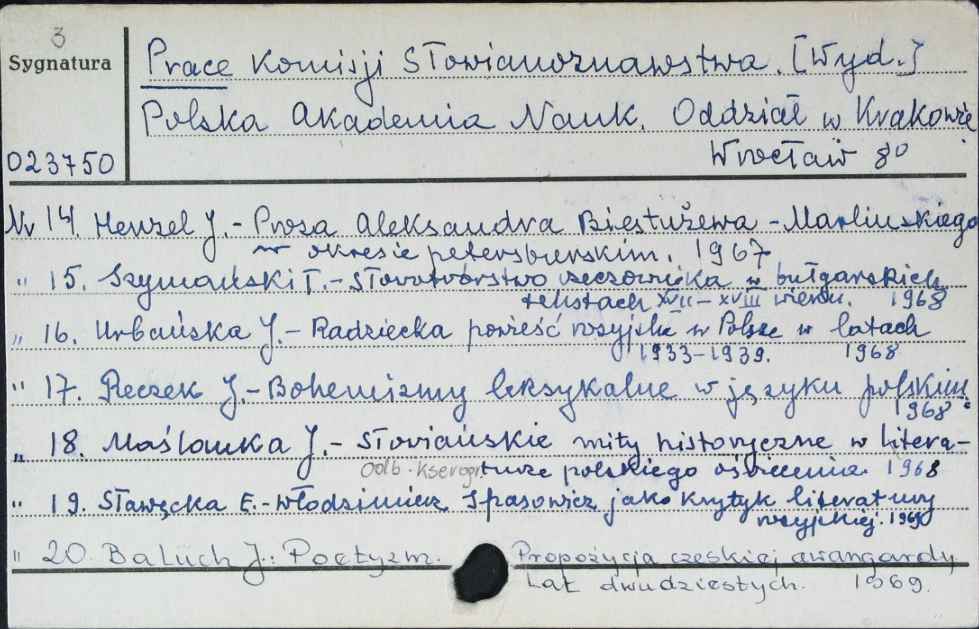 3
Sygnatura
Prace Komisji Słowianoznawstwa. [Wyd.]
Polska Akademia Nauk. Oddział w Krakowie
023750
Wrocław 8°
Nr 14. Henzel J. - Proza Aleksandra Biestużewa - Marlinskiego
w okresie petersburskim. 1967
" 15. Szymański T. - Słowotwórstwo rzeczownika w bułgarskich
tekstach XVII - XVIII wieku. 1968
" 16. Urbańska J. - Radziecka powieść rosyjska w Polsce w latach
1933-1939. 1968
" 17. Reczek J. - Bohemizmy leksykalne w języku polskim
1968
" 18. Maślanka J. - Słowiańskie mity historyczne w litera-
Odb. kserogr. turze polskiego oświecenia. 1968
" 19. Sławęcka E. - Włodzimierz Spasowicz jako krytyk literatury
rosyjskiej. 1969
" 20. Baluch J.: Poetyzm. Propozycja czeskiej awangardy
lat dwudziestych. 1969.